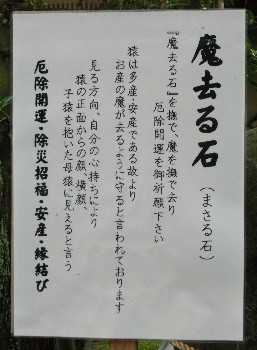 魔去る石
(まさる石)
『魔去る石』を撫で、魔を撫で去り
厄除開運を御祈願下さい
猿は多産・安産である故より
お産の魔が去るように守ると言われております
見る方向、自分の心持ちにより
猿の正面からの顔、横顔、
子猿を抱いた母猿に見えると言う
厄除開運・除災招福・安産・縁結び